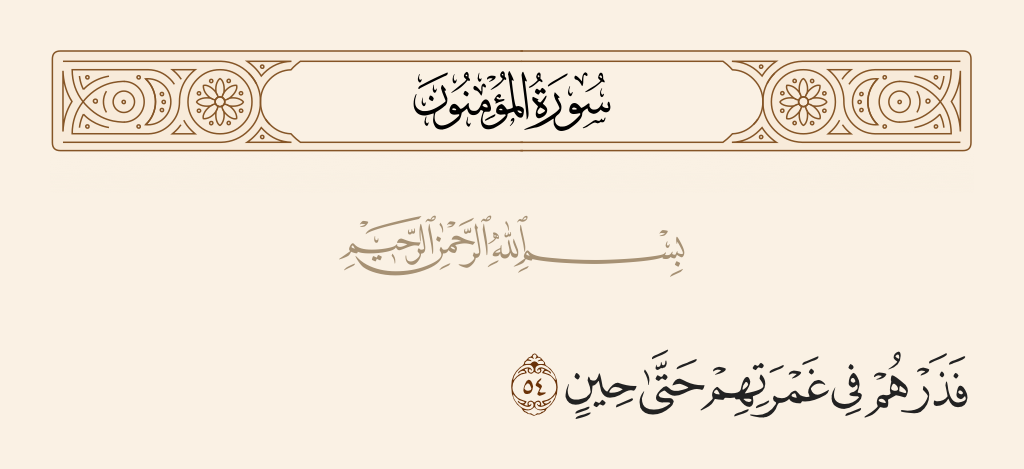 سُورَةُ المُؤْمِنُونَ
بِسْمِ ٱللَّهِ ٱلرَّحْمَٰنِ ٱلرَّحِيمِ
فَذَرْهُمْ فِى غَمْرَتِهِمْ حَتَّىٰ حِينٍ ٥٤